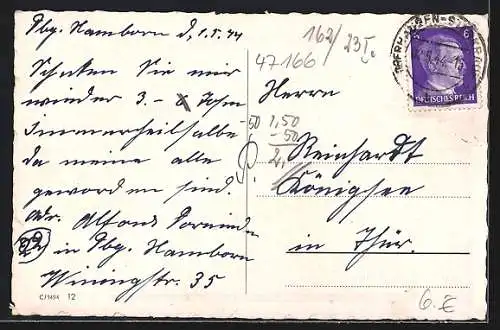 Dbg. Hamborn d, 1.5.44
Schicken Sie mir
wieder 3.-
Immerheilsalbe
da meine alle
geworden sind.
Adr. Alfons
in Dbg. Hamborn
Winingstr. 35
C/1494 12
162/23I.
47166
Herrn
-50 1,50
-50
2,
Reinhardt
Königsee
in Thür.
6
DEUTSCHES REICH
6.E